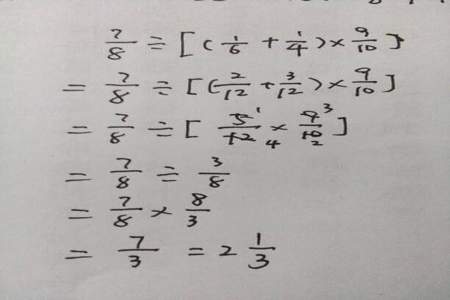 7/8 ÷ [(1/6 + 1/4) × 9/10]
= 7/8 ÷ [(2/12 + 3/12) × 9/10]
= 7/8 ÷ [5/12 × 9/10] 1 4 3 2
= 7/8 ÷ 3/8
= 7/8 × 8/3
= 7/3 = 2 1/3